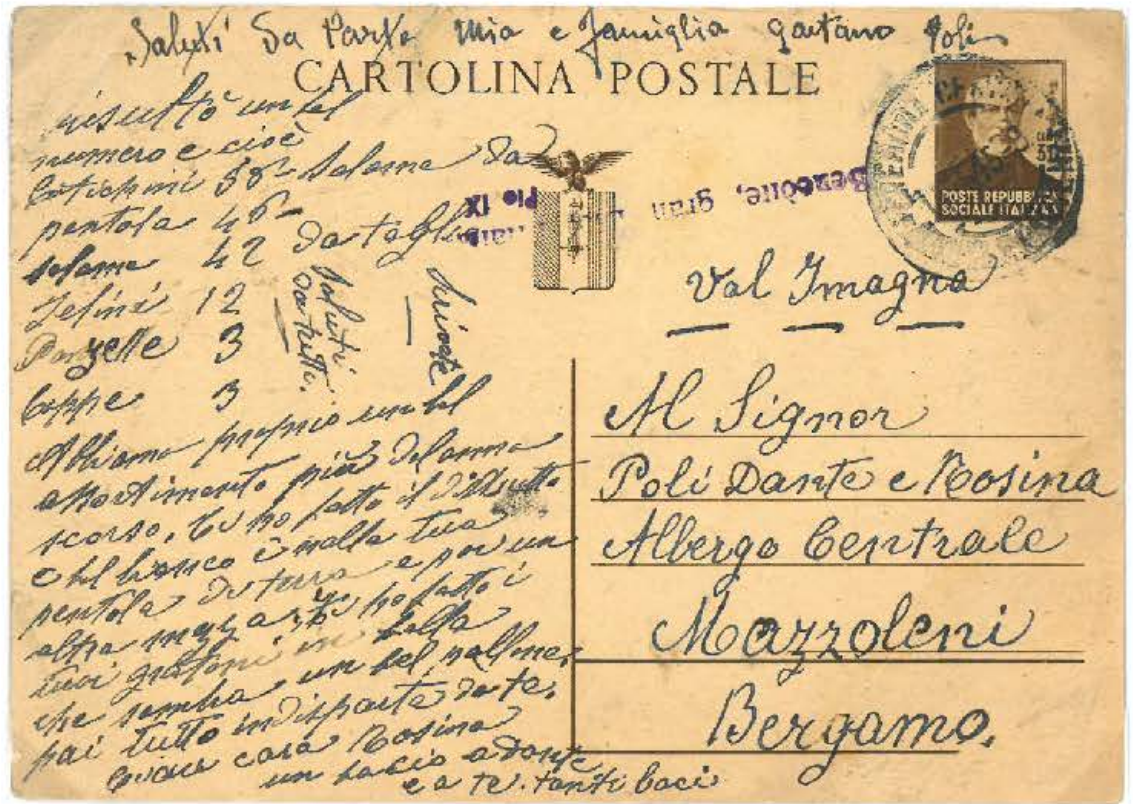 Saluti Da Parte Mia e famiglia Gaetano Poli
CARTOLINA POSTALE
POSTE REPUBBLICA
SOCIALE ITALIANA
Benzône, gran
Pio IX
Val Imagna
Al Signor
Poli Dante e Rosina
Albergo Centrale
Mazzoleni
Bergamo.
risultò un bel
numero e cioè
Cotichini 38 Salame da
pentola 46
salame 42 da taglio
Zelini 12
3
Coppe 3
Saluti
da tutti.
Abbiamo proprio un bel
assortimento più del anno
scorso, ti ho fatto il
e bel bianco è nella tua
pentola di terra e poi un
altra mezza, ti ho fatto i
tuoi gratoni in balla
che sembra un bel pallone.
hai tutto indisparte da te.
cara Rosina
un bacio a Dante
e a te. tanti baci